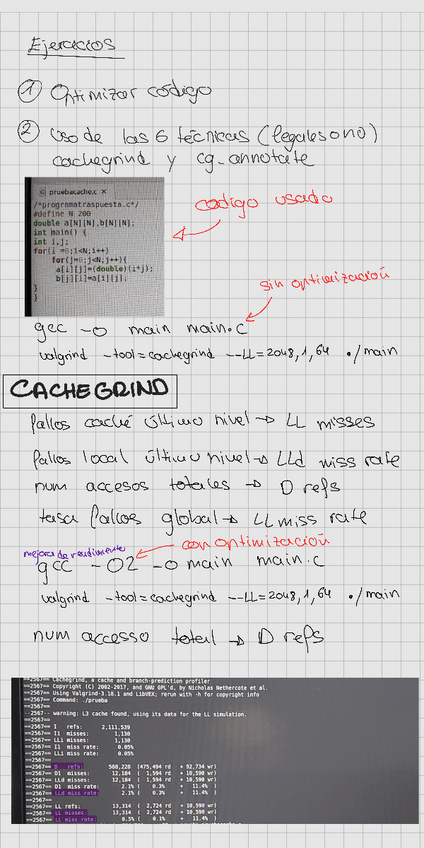 Ejercicios
① Optimizar código
② Uso de las 6 técnicas (legales o no)
cachegrind y cg_annotate
pruebacache.c ×
código usado
/*programatraspuesta.c*/
#define N 200
double a[N][N],b[N][N];
int main() {
int i,j;
for(i =0;i<N;i++)
for(j=0;j<N;j++){
a[i][j]=(double)(i*j);
b[j][i]=a[i][j];
}
}
sin optimización
gcc -o main main.c
valgrind -tool=cachegrind --LL=2048,1,64 ./main
CACHEGRIND
fallos caché último nivel → LL misses
fallos local último nivel → LLd miss rate
num accesos totales → D refs
tasa fallos global → LL miss rate
con optimización
mejora de rendimiento
gcc -O2 -o main main.c
valgrind -tool=cachegrind --LL=2048,1,64 ./main
num accesso total → D refs
==2567== Cachegrind, a cache and branch-prediction profiler
==2567== Copyright (C) 2002-2017, and GNU GPL'd, by Nicholas Nethercote et al.
==2567== Using Valgrind-3.18.1 and LibVEX; rerun with -h for copyright info
==2567== Command: ./prueba
==2567==
--2567-- warning: L3 cache found, using its data for the LL simulation.
==2567==
==2567== I refs: 2,111,539
==2567== I1 misses: 1,130
==2567== LLi misses: 1,130
==2567== I1 miss rate: 0.05%
==2567== LLi miss rate: 0.05%
==2567==
==2567== D refs: 568,228 (475,494 rd + 92,734 wr)
==2567== D1 misses: 12,184 ( 1,594 rd + 10,590 wr)
==2567== LLd misses: 12,184 ( 1,594 rd + 10,590 wr)
==2567== D1 miss rate: 2.1% ( 0.3% + 11.4% )
==2567== LLd miss rate: 2.1% ( 0.3% + 11.4% )
==2567==
==2567== LL refs: 13,314 ( 2,724 rd + 10,590 wr)
==2567== LL misses: 13,314 ( 2,724 rd + 10,590 wr)
==2567== LL miss rate: 0.5% ( 0.1% + 11.4% )